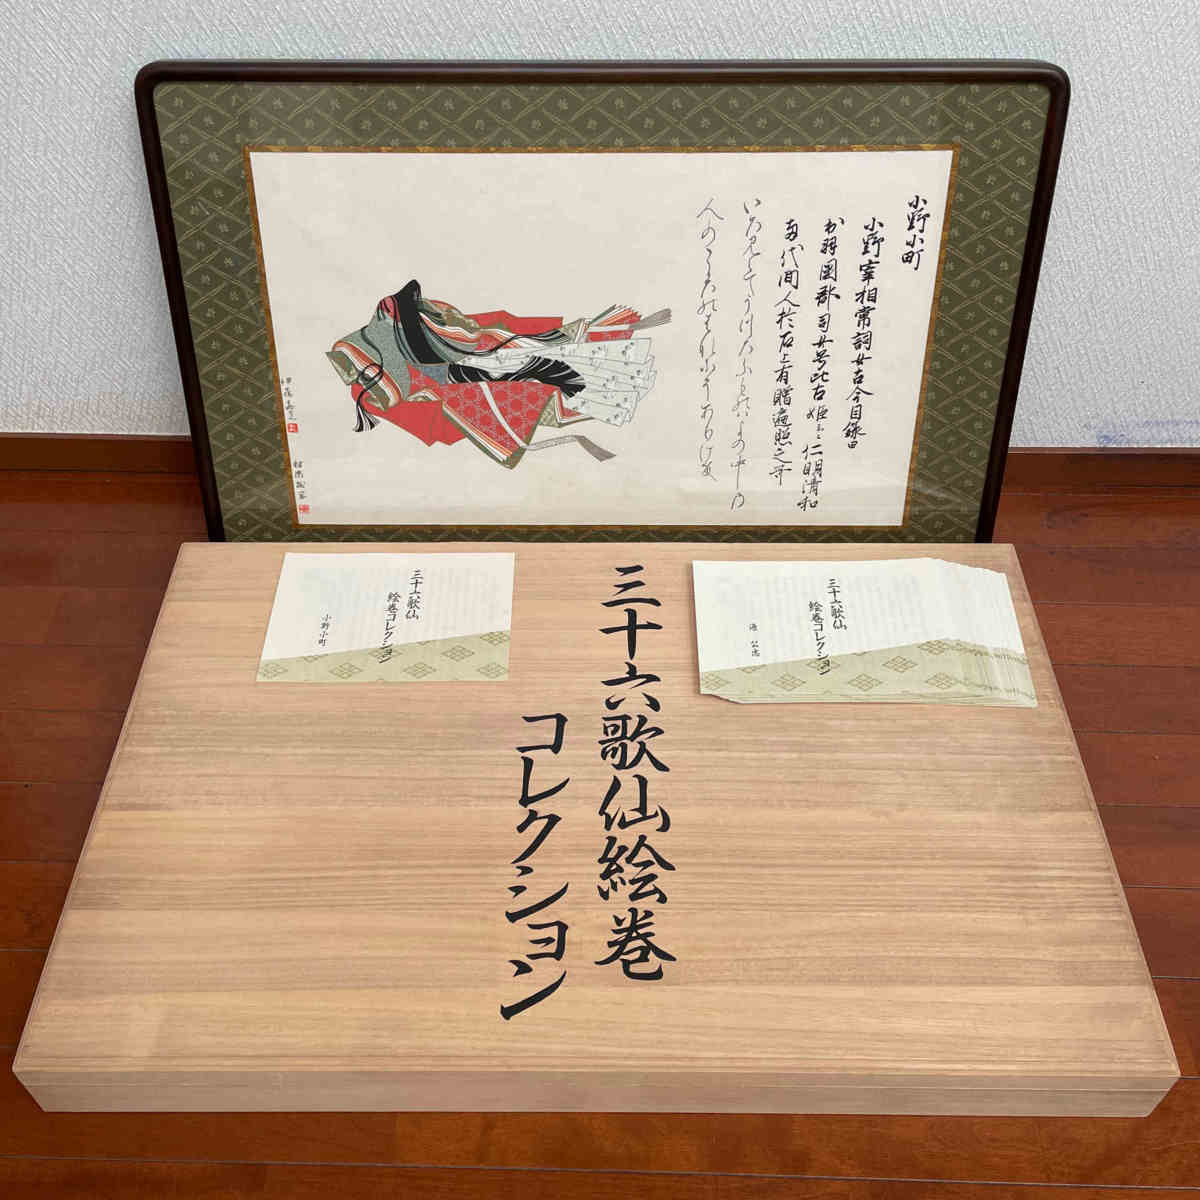 小野小町
小野宰相常詞女古今目録曰
出羽国郡司女号比古姫云々仁明清和
両代間人於石上有贈遍照之哥
いろ見えてうつろふものはよの中の
人のこころのはなにそありける
三十六歌仙
絵巻コレクション
小野小町
三十六歌仙
絵巻コレクション
源公忠
三十六歌仙絵巻
コレクション